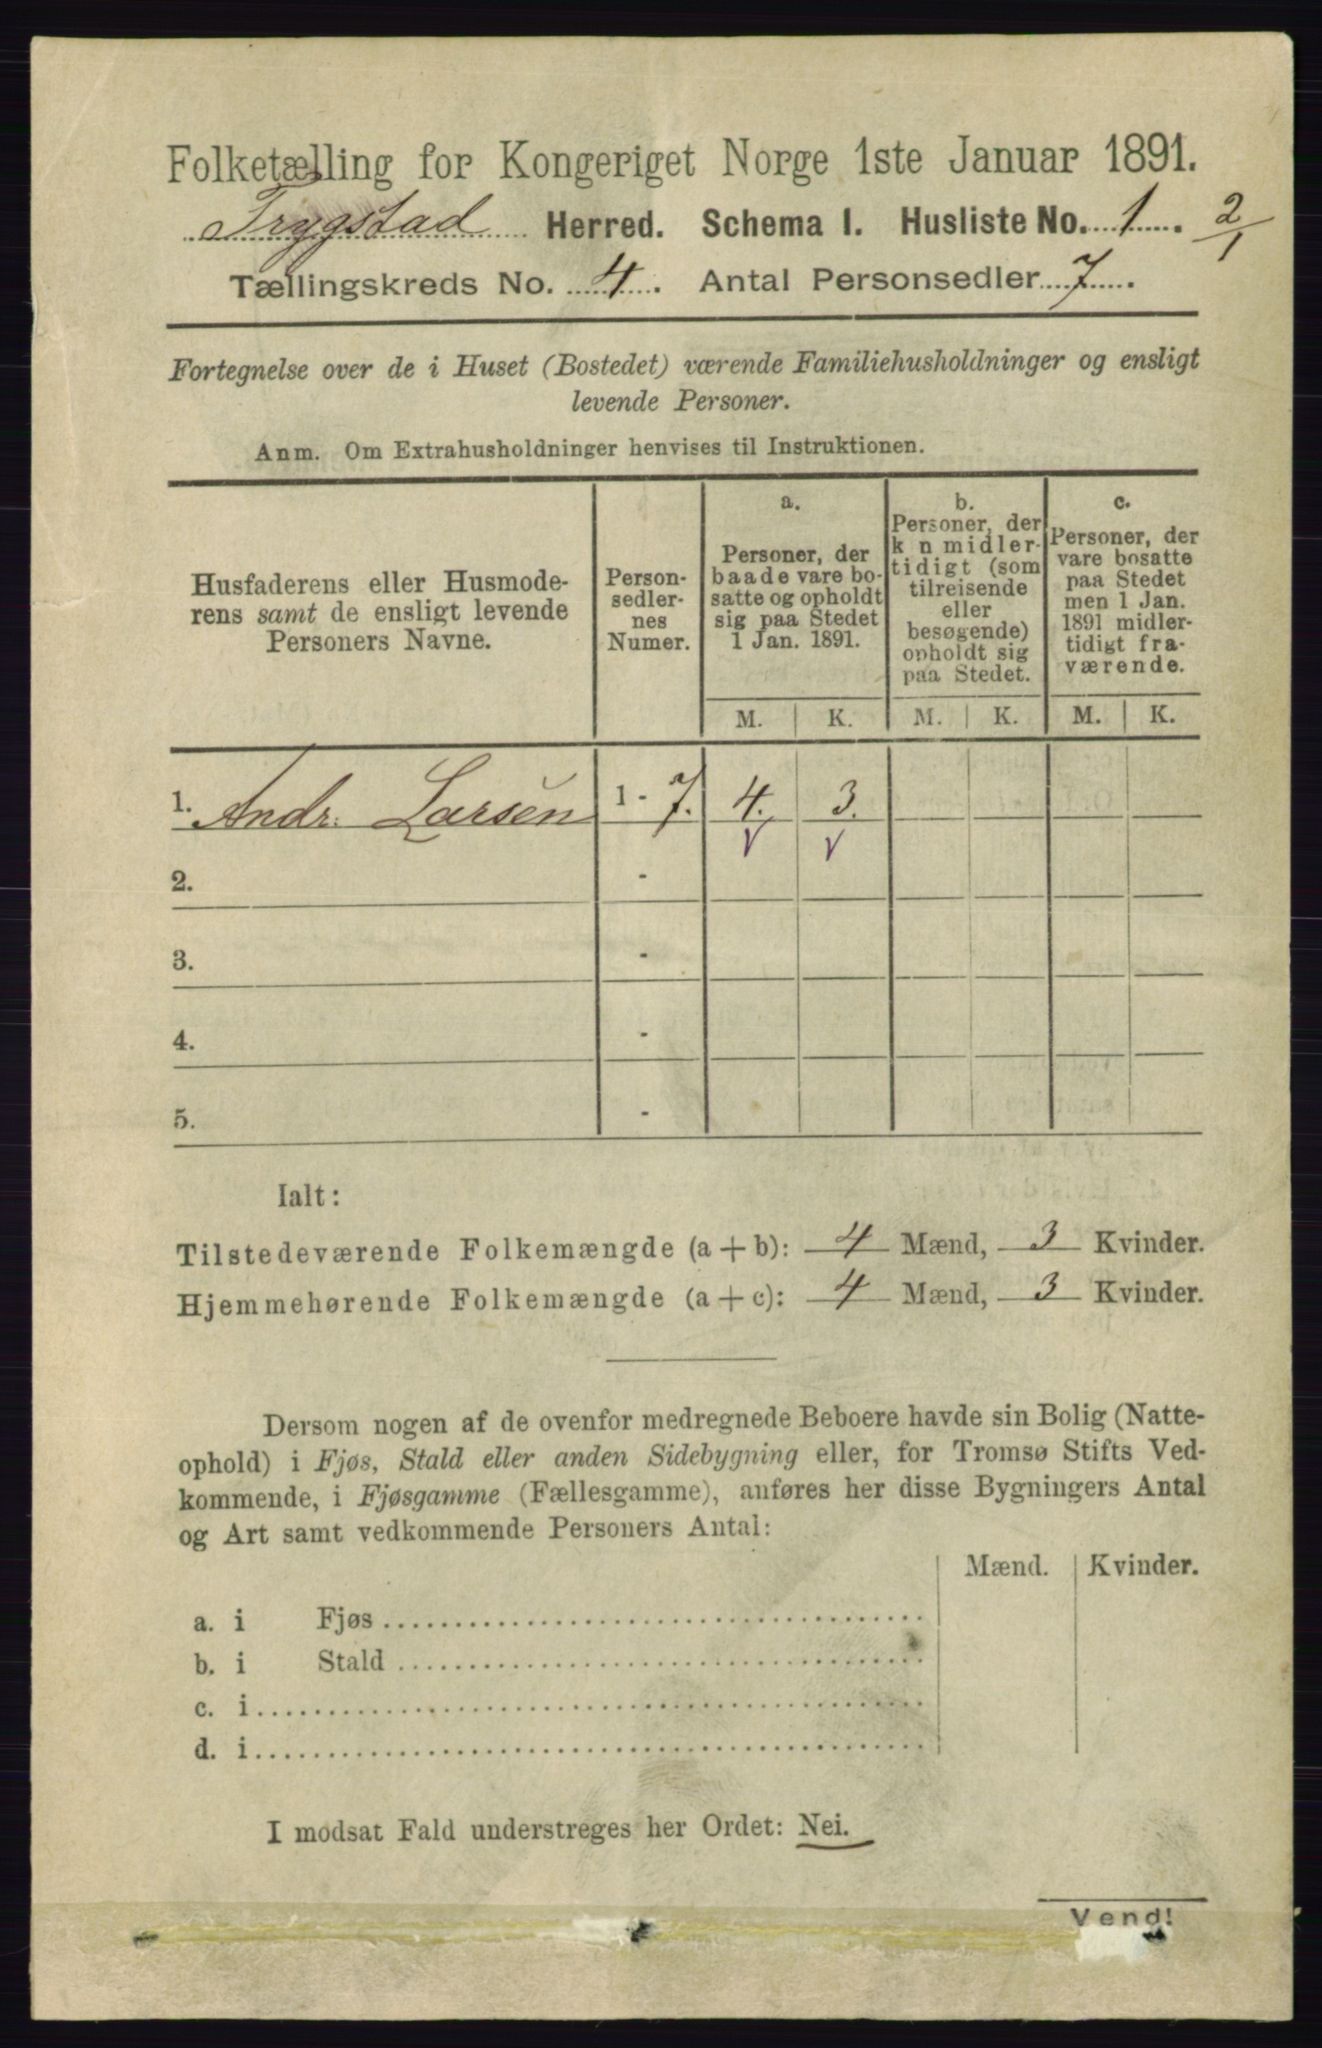 Folketælling for Kongeriget Norge 1ste Januar 1891.
Trygstad Herred. Schema I. Husliste No. 1. 2/1
Tællingskreds No. 4. Antal Personsedler 7.
Fortegnelse over de i Huset (Bostedet) værende Familiehusholdninger og ensligt
levende Personer.
Anm. Om Extrahusholdninger henvises til Instruktionen.
Husfaderens eller Husmode-
rens samt de ensligt levende
Personers Navne.
Person-
sedler-
nes
Numer.
a.
Personer, der
baade vare bo-
satte og opholdt
sig paa Stedet
1 Jan. 1891.
b.
Personer, der
k n midler-
tidigt (som
tilreisende
eller
besøgende)
opholdt sig
paa Stedet.
c.
Personer, der
vare bosatte
paa Stedet
men 1 Jan.
1891 midler-
tidigt fra-
værende.
M. K. M. K. M. K.
1. Andr. Larsen 1 - 7. 4. 3.
V V
2. -
3. -
4. -
5. -
Ialt:
Tilstedeværende Folkemængde (a + b): 4 Mænd, 3 Kvinder.
Hjemmehørende Folkemængde (a + c): 4 Mænd, 3 Kvinder.
Dersom nogen af de ovenfor medregnede Beboere havde sin Bolig (Natte-
ophold) i Fjøs, Stald eller anden Sidebygning eller, for Tromsø Stifts Ved-
kommende, i Fjøsgamme (Fællesgamme), anføres her disse Bygningers Antal
og Art samt vedkommende Personers Antal:
Mænd. Kvinder.
a. i Fjøs
b. i Stald
c. i
d. i
I modsat Fald understreges her Ordet: Nei.
Vend!